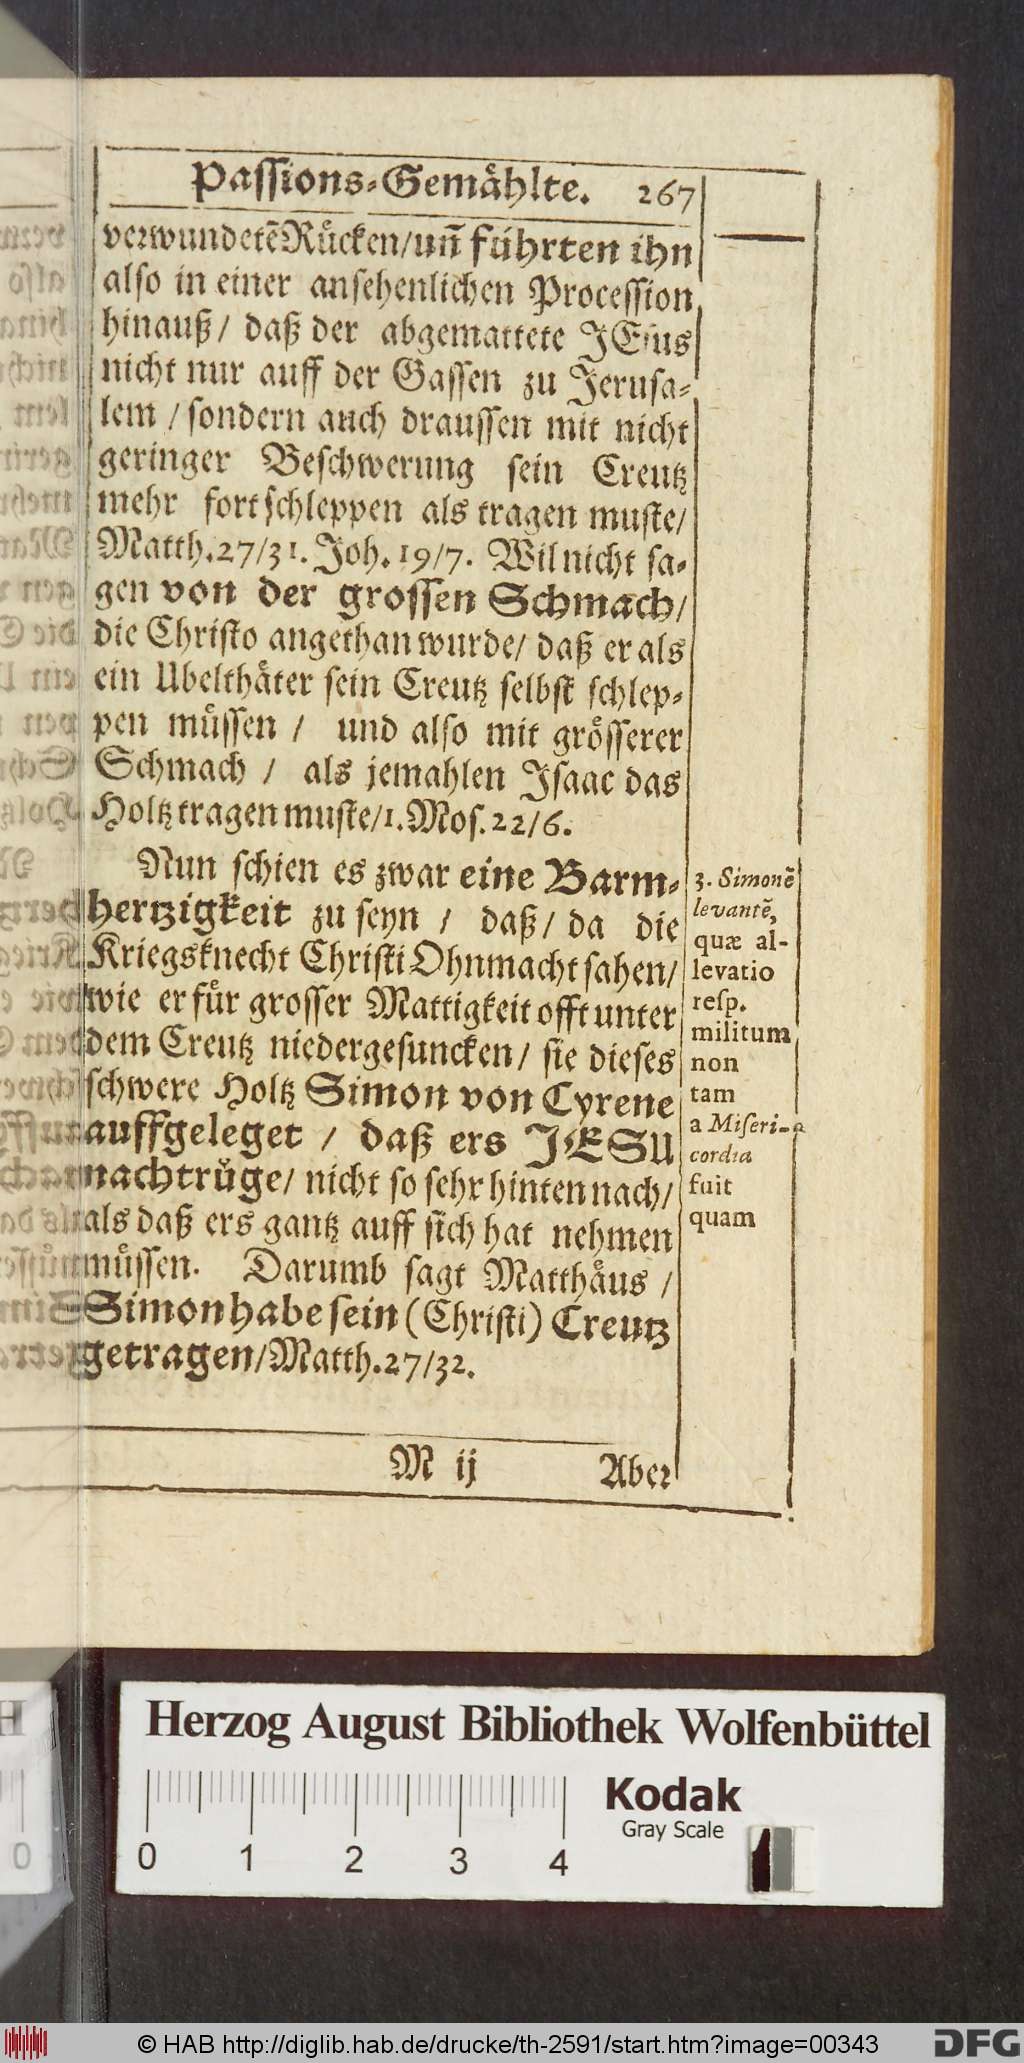 Passions-Gemählte. 267
verwundetẽ Rücken/ uñ führten ihn
also in einer ansehenlichen Procession
hinauß/ daß der abgemattete JEsus
nicht nur auff der Gassen zu Jerusa-
lem / sondern auch draussen mit nicht
geringer Beschwerung sein Creutz
mehr fortschleppen als tragen muste/
Matth. 27/31. Joh. 19/7. Wil nicht sa-
gen von der grossen Schmach/
die Christo angethan wurde/ daß er als
ein Ubelthäter sein Creutz selbst schlep-
pen müssen / und also mit grösserer
Schmach / als jemahlen Isaac das
Holtz tragen muste/ 1. Mos. 22/6.
Nun schien es zwar eine Barm-
hertzigkeit zu seyn / daß/ da die
Kriegsknecht Christi Ohnmacht sahen/
wie er für grosser Mattigkeit offt unter
dem Creutz niedergesuncken/ sie dieses
schwere Holtz Simon von Cyrene
auffgeleget / daß ers JESU
nachtrüge/ nicht so sehr hinten nach/
als daß ers gantz auff sich hat nehmen
müssen. Darumb sagt Matthäus /
Simon habe sein (Christi) Creutz
getragen/ Matth. 27/32.
3. Simonẽ
levantẽ,
quæ al-
levatio
resp.
militum
non
tam
a Miseri-
cordia
fuit
quam
M ij Aber
Herzog August Bibliothek Wolfenbüttel
Kodak
Gray Scale
0 1 2 3 4
© HAB http://diglib.hab.de/drucke/th-2591/start.htm?image=00343
DFG